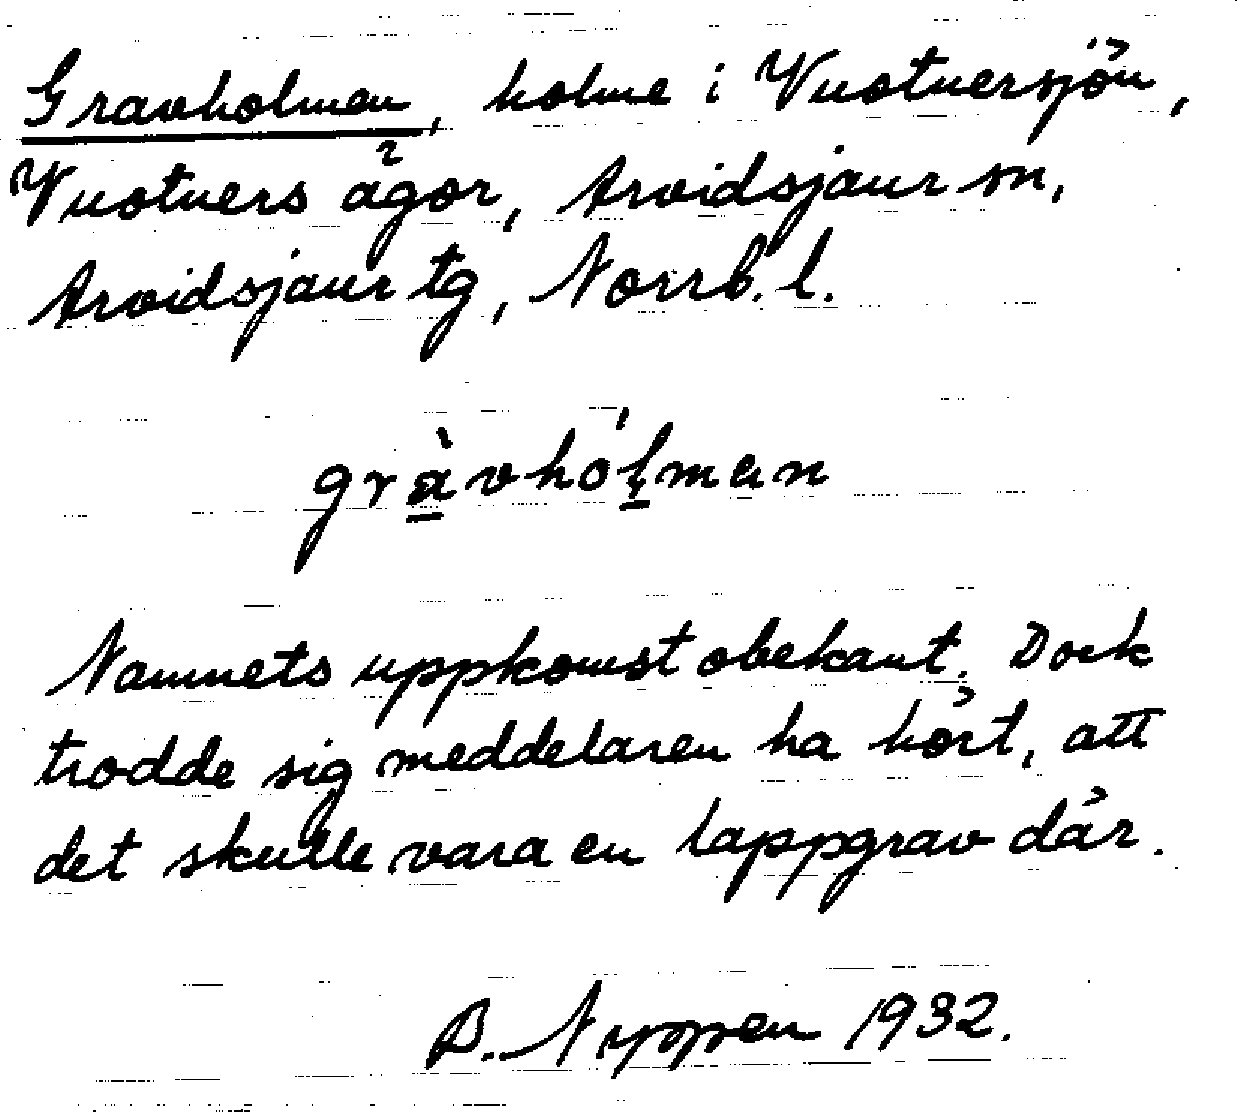 Gravholmen, holme i Vuotnersjön,
Vuotners ägor, Arvidsjaur sn,
Arvidsjaur tg, Norrb. l.
gràvhól̥man
Namnets uppkomst obekant. Dock
trodde sig meddelaren ha hört, att
det skulle vara en lappgrav där.
B. Nyppen 1932.